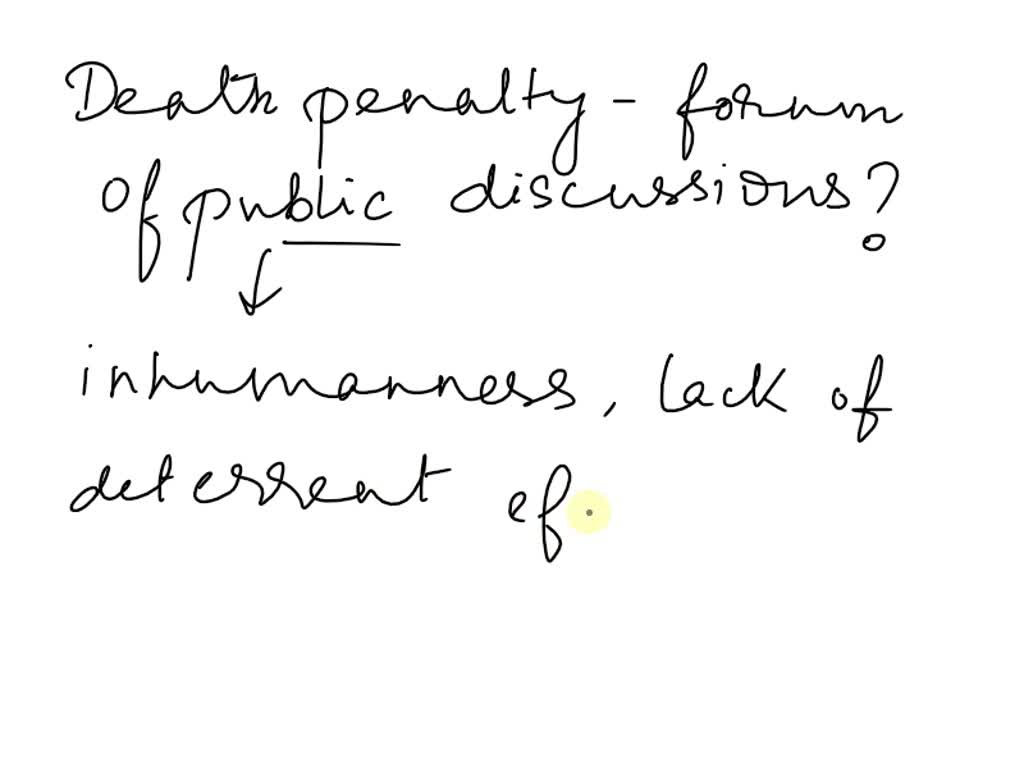 Death penalty - forum
of public discussions?
↓
inhumanness, lack of
deterrent ef